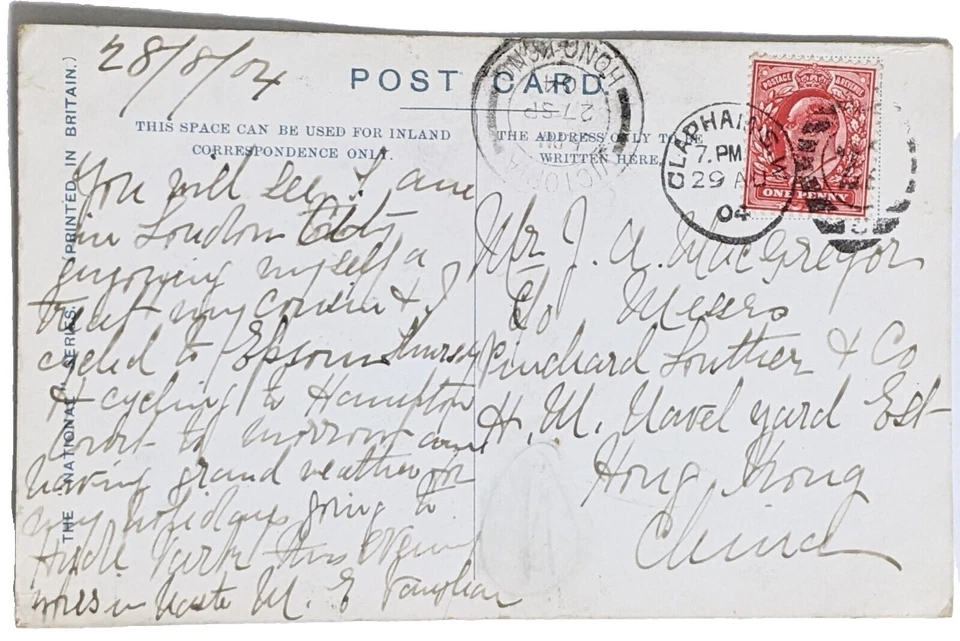 28/8/04
POST CARD.
THIS SPACE CAN BE USED FOR INLAND
CORRESPONDENCE ONLY.
THE ADDRESS ONLY TO BE
WRITTEN HERE.
THE "NATIONAL" SERIES. (PRINTED IN BRITAIN.)
HONG KONG
27 SP
04
VICTORIA
CLAPHAM
7. PM
29 AU
04
POSTAGE & REVENUE
ONE PENNY
You will see I am
in London City
enjoying myself a
treat my cousin & I
cycled to Epsom
cycling to Hampton
Court to morrow am
having grand weather for
my holidays going to
Hyde Park this evening
in haste M. E. Vaughan
Mr J. A. MacGregor
C/o Messrs
Punchard Lowther & Co
H. M. Navel yard Est
Hong Kong
China